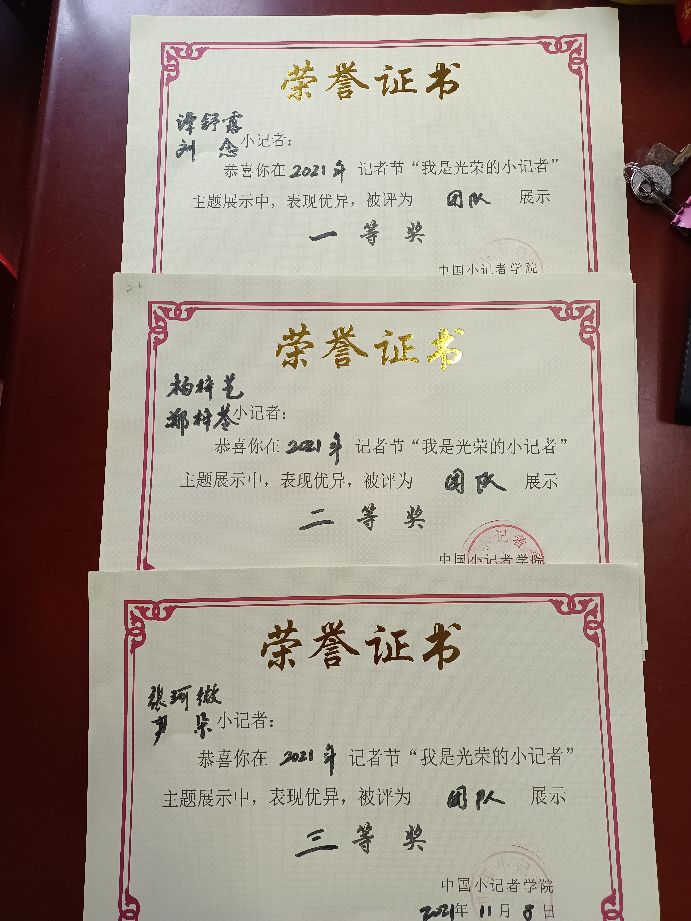 荣誉证书
谭舒露
刘 念 小记者：
恭喜你在 2021年 记者节“我是光荣的小记者”
主题展示中，表现优异，被评为 团队 展示
一等奖
中国小记者学院
荣誉证书
杨梓艺
郑梓苓 小记者：
恭喜你在 2021年 记者节“我是光荣的小记者”
主题展示中，表现优异，被评为 团队 展示
二等奖
中国小记者学院
荣誉证书
张珂微
尹 朵 小记者：
恭喜你在 2021年 记者节“我是光荣的小记者”
主题展示中，表现优异，被评为 团队 展示
三等奖
中国小记者学院
2021年 11月 8日